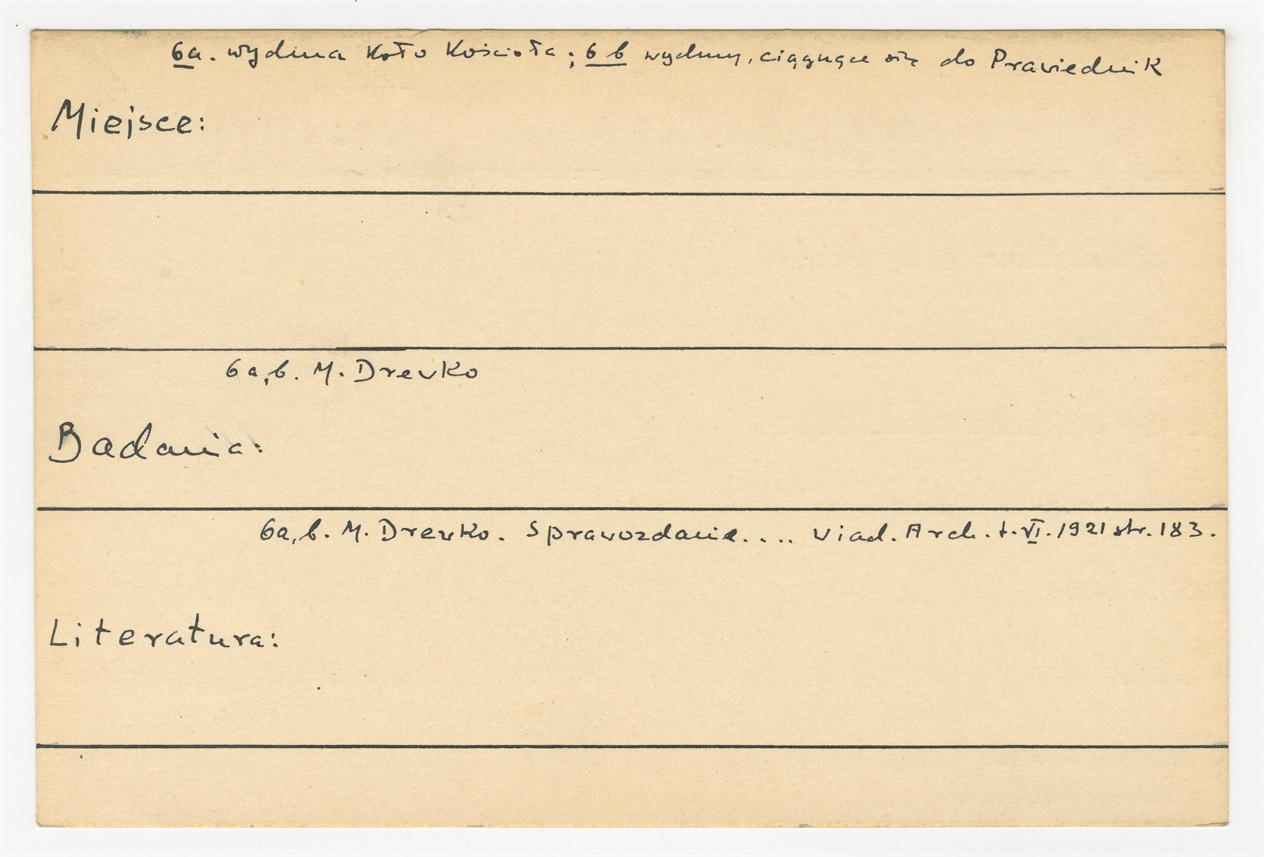 6a. wydma koło Kościoła; 6b wydmy, ciągnące się do Prawiednik
Miejsce:
6a,b. M. Drewko
Badania:
6a,b. M. Drewko. Sprawozdanie.... Wiad. Arch. t. VI. 1921 str. 183.
Literatura: